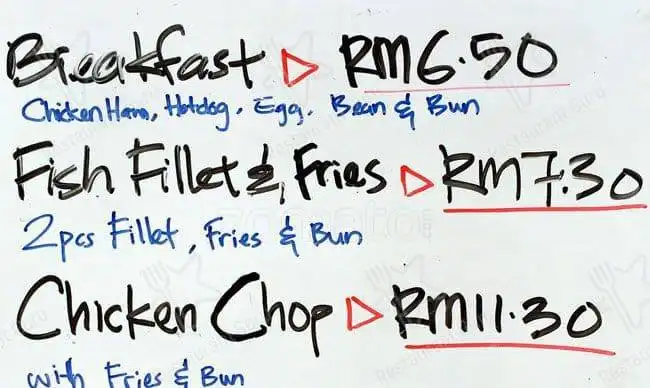 Breakfast ▷ RM6.50
Chicken Ham, Hotdog, Egg, Bean & Bun
Fish Fillet & Fries ▷ RM7.30
2pcs Fillet, Fries & Bun
Chicken Chop ▷ RM11.30
with Fries & Bun